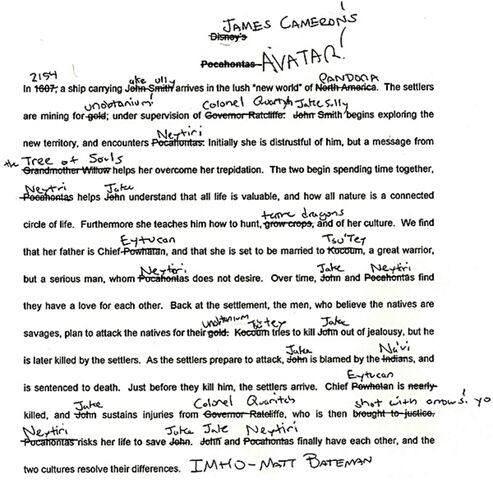 JAMES CAMERON'S
Disney's
Pocahontas AVATAR!
2154 Jake Sully PANDORA
In 1607, a ship carrying John Smith arrives in the lush "new world" of North America. The settlers
unobtanium Colonel Quaritch Jake Sully
are mining for gold; under supervision of Governor Ratcliffe. John Smith begins exploring the
Neytiri
new territory, and encounters Pocahontas. Initially she is distrustful of him, but a message from
the Tree of Souls
Grandmother Willow helps her overcome her trepidation. The two begin spending time together,
Neytiri Jake
Pocahontas helps John understand that all life is valuable, and how all nature is a connected
tame dragons
circle of life. Furthermore she teaches him how to hunt, grow crops, and of her culture. We find
Eytucan Tsu'Tey
that her father is Chief Powhatan, and that she is set to be married to Kocoum, a great warrior,
Neytiri Jake Neytiri
but a serious man, whom Pocahontas does not desire. Over time, John and Pocahontas find
they have a love for each other. Back at the settlement, the men, who believe the natives are
unobtanium Tsu'tey Jake
savages, plan to attack the natives for their gold. Kocoum tries to kill John out of jealousy, but he
Jake Na'vi
is later killed by the settlers. As the settlers prepare to attack, John is blamed by the Indians, and
Eytucan
is sentenced to death. Just before they kill him, the settlers arrive. Chief Powhatan is nearly
Jake Colonel Quaritch shot with arrows! yo
killed, and John sustains injuries from Governor Ratcliffe, who is then brought to justice.
Neytiri Jake Jake Neytiri
Pocahontas risks her life to save John. John and Pocahontas finally have each other, and the
two cultures resolve their differences. IMHO-MATT BATEMAN